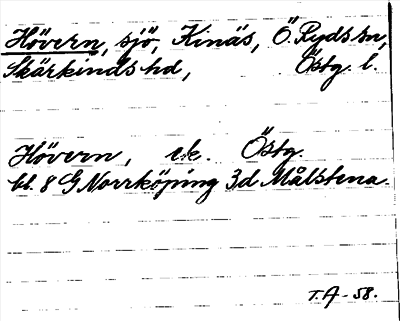 Hövern, sjö, Kinäs, Ö. Ryds sn,
Skärkinds hd, Östg. l.
Hövern, ek. Östg.
bl. 8 G Norrköping 3d Målstena.
T.A-58.